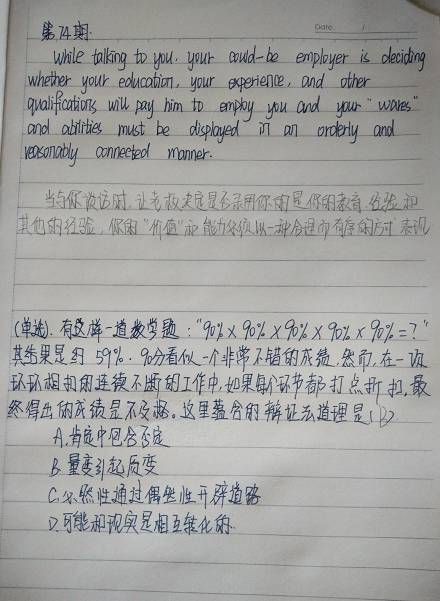 第74期.
Date
While talking to you, your could-be employer is deciding
whether your education, your experience, and other
qualifications will pay him to employ you and your "wares"
and abilities must be displayed in an orderly and
reasonably connected manner.
当与你谈话时，让老板决定是否录用你的是你的教育,经验和
其他的经验，你的"价值"和能力必须以一种合理而有序的方式表现
(单选). 有这样一道数学题："90%×90%×90%×90%×90%=?"
其结果是约59%. 90分看似一个非常不错的成绩.然而,在一项
环环相扣的连续不断的工作中,如果每个环节都打点折扣,最
终得出的成绩是不及格。这里蕴含的辩证法道理是(B)
A.肯定中包含否定
B.量变引起质变
C.必然性通过偶然性开辟道路
D.可能和现实是相互转化的.